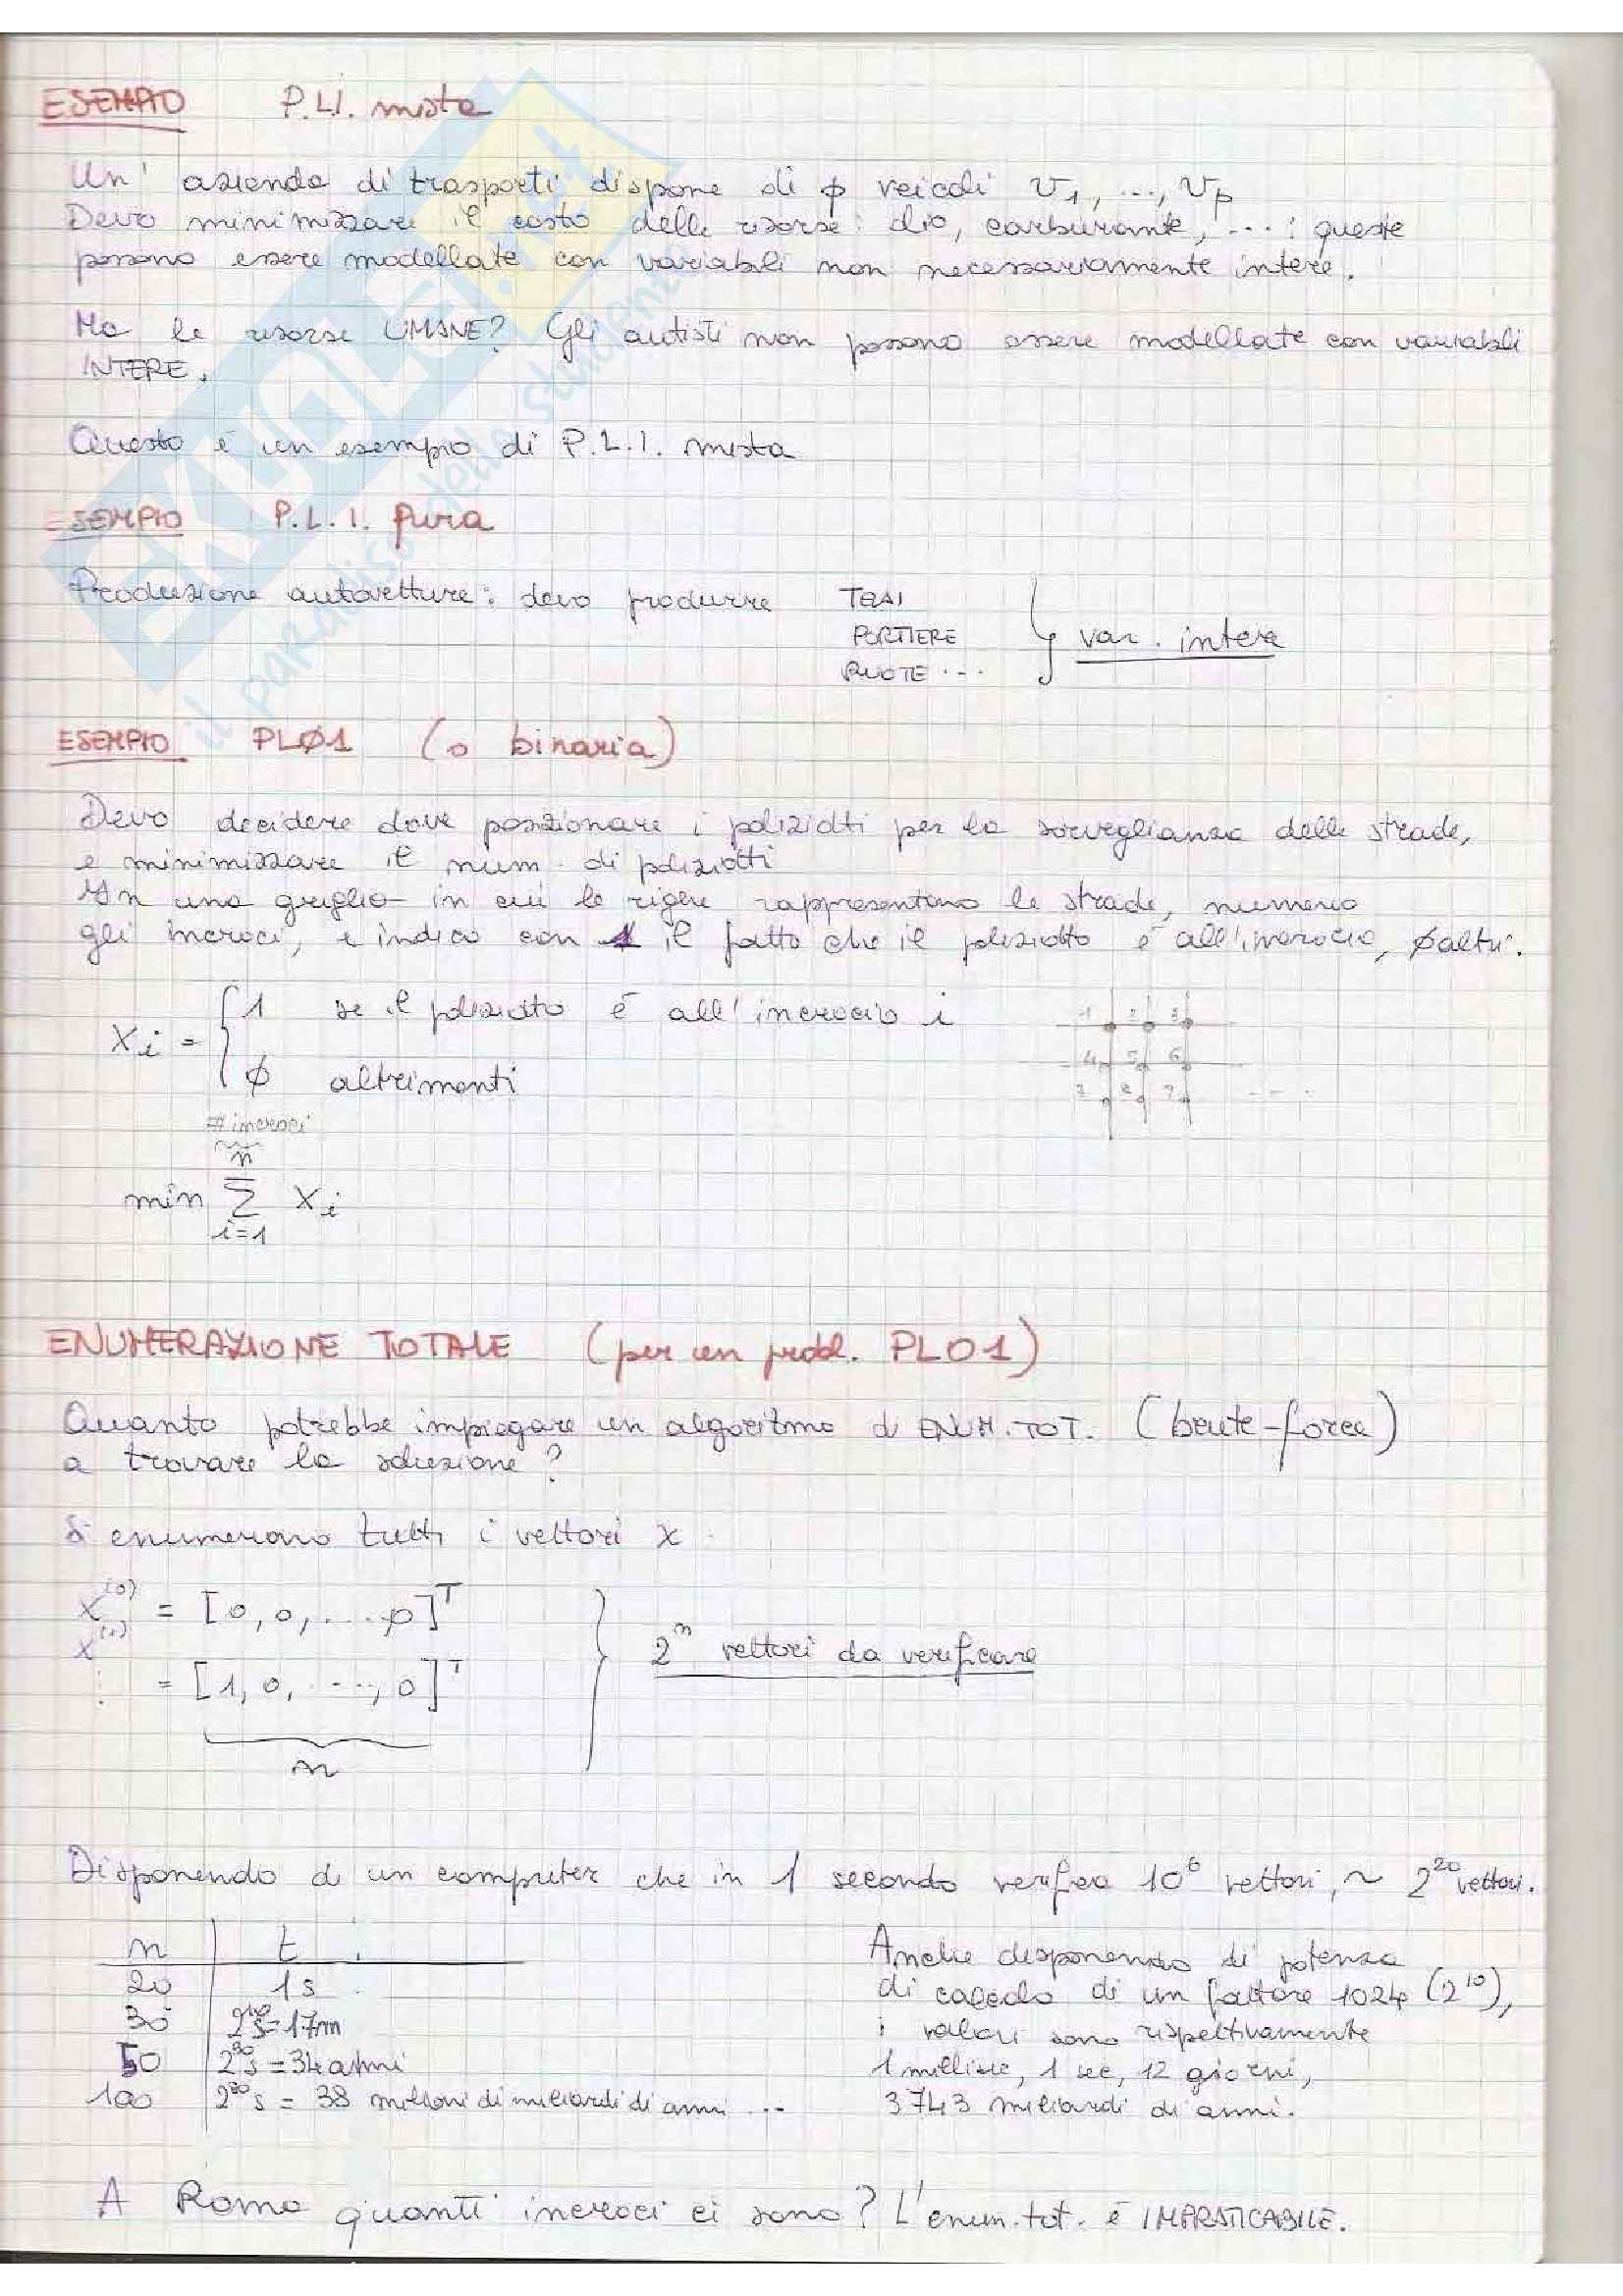 ESEMPIO P.L.I. mista
Un' azienda di trasporti dispone di p veicoli v1, ..., vp
Devo minimizzare il costo delle risorse: olio, carburante, ...: queste
possono essere modellate con variabili non necessariamente intere.
Ma le risorse UMANE? Gli autisti non possono essere modellate con variabili
INTERE.
Questo è un esempio di P.L.I. mista
ESEMPIO P.L.I. pura
Produzione autovetture: devo produrre TELAI
PORTIERE
RUOTE ...
var. intere
ESEMPIO PLØ1 (o binaria)
Devo decidere dove posizionare i poliziotti per la sorveglianza delle strade,
e minimizzare il num. di poliziotti
In una griglia in cui le righe rappresentano le strade, numero
gli incroci, e indico con 1 il fatto che il poliziotto è all'incrocio, Ø altri.
xi = { 1 se il poliziotto è all'incrocio i
Ø altrimenti
1 2 3
4 5 6
7 8 9 ...
# incroci
n
min Σ xi
i=1
ENUMERAZIONE TOTALE (per un probl. PL01)
Quanto potrebbe impiegare un algoritmo di ENUM.TOT. (brute-force)
a trovare la soluzione?
Si enumerano tutti i vettori x
x^(0) = [0, 0, ..., 0]^T
x^(1)
⋮ = [1, 0, ..., 0]^T
n
2^n vettori da verificare
Disponendo di un computer che in 1 secondo verifica 10^6 vettori, ~ 2^20 vettori.
n | t
20 | 1 s
30 | 2^10 s = 17m
50 | 2^30 s = 34 anni
100 | 2^80 s = 38 milioni di miliardi di anni ...
Anche disponendo di potenza
di calcolo di un fattore 1024 (2^10),
i valori sono rispettivamente
1 millisec, 1 sec, 12 giorni,
3743 miliardi di anni.
A Roma quanti incroci ci sono? L'enum.tot. è IMPRATICABILE.
SKUOLA.net
il paradiso dello studente